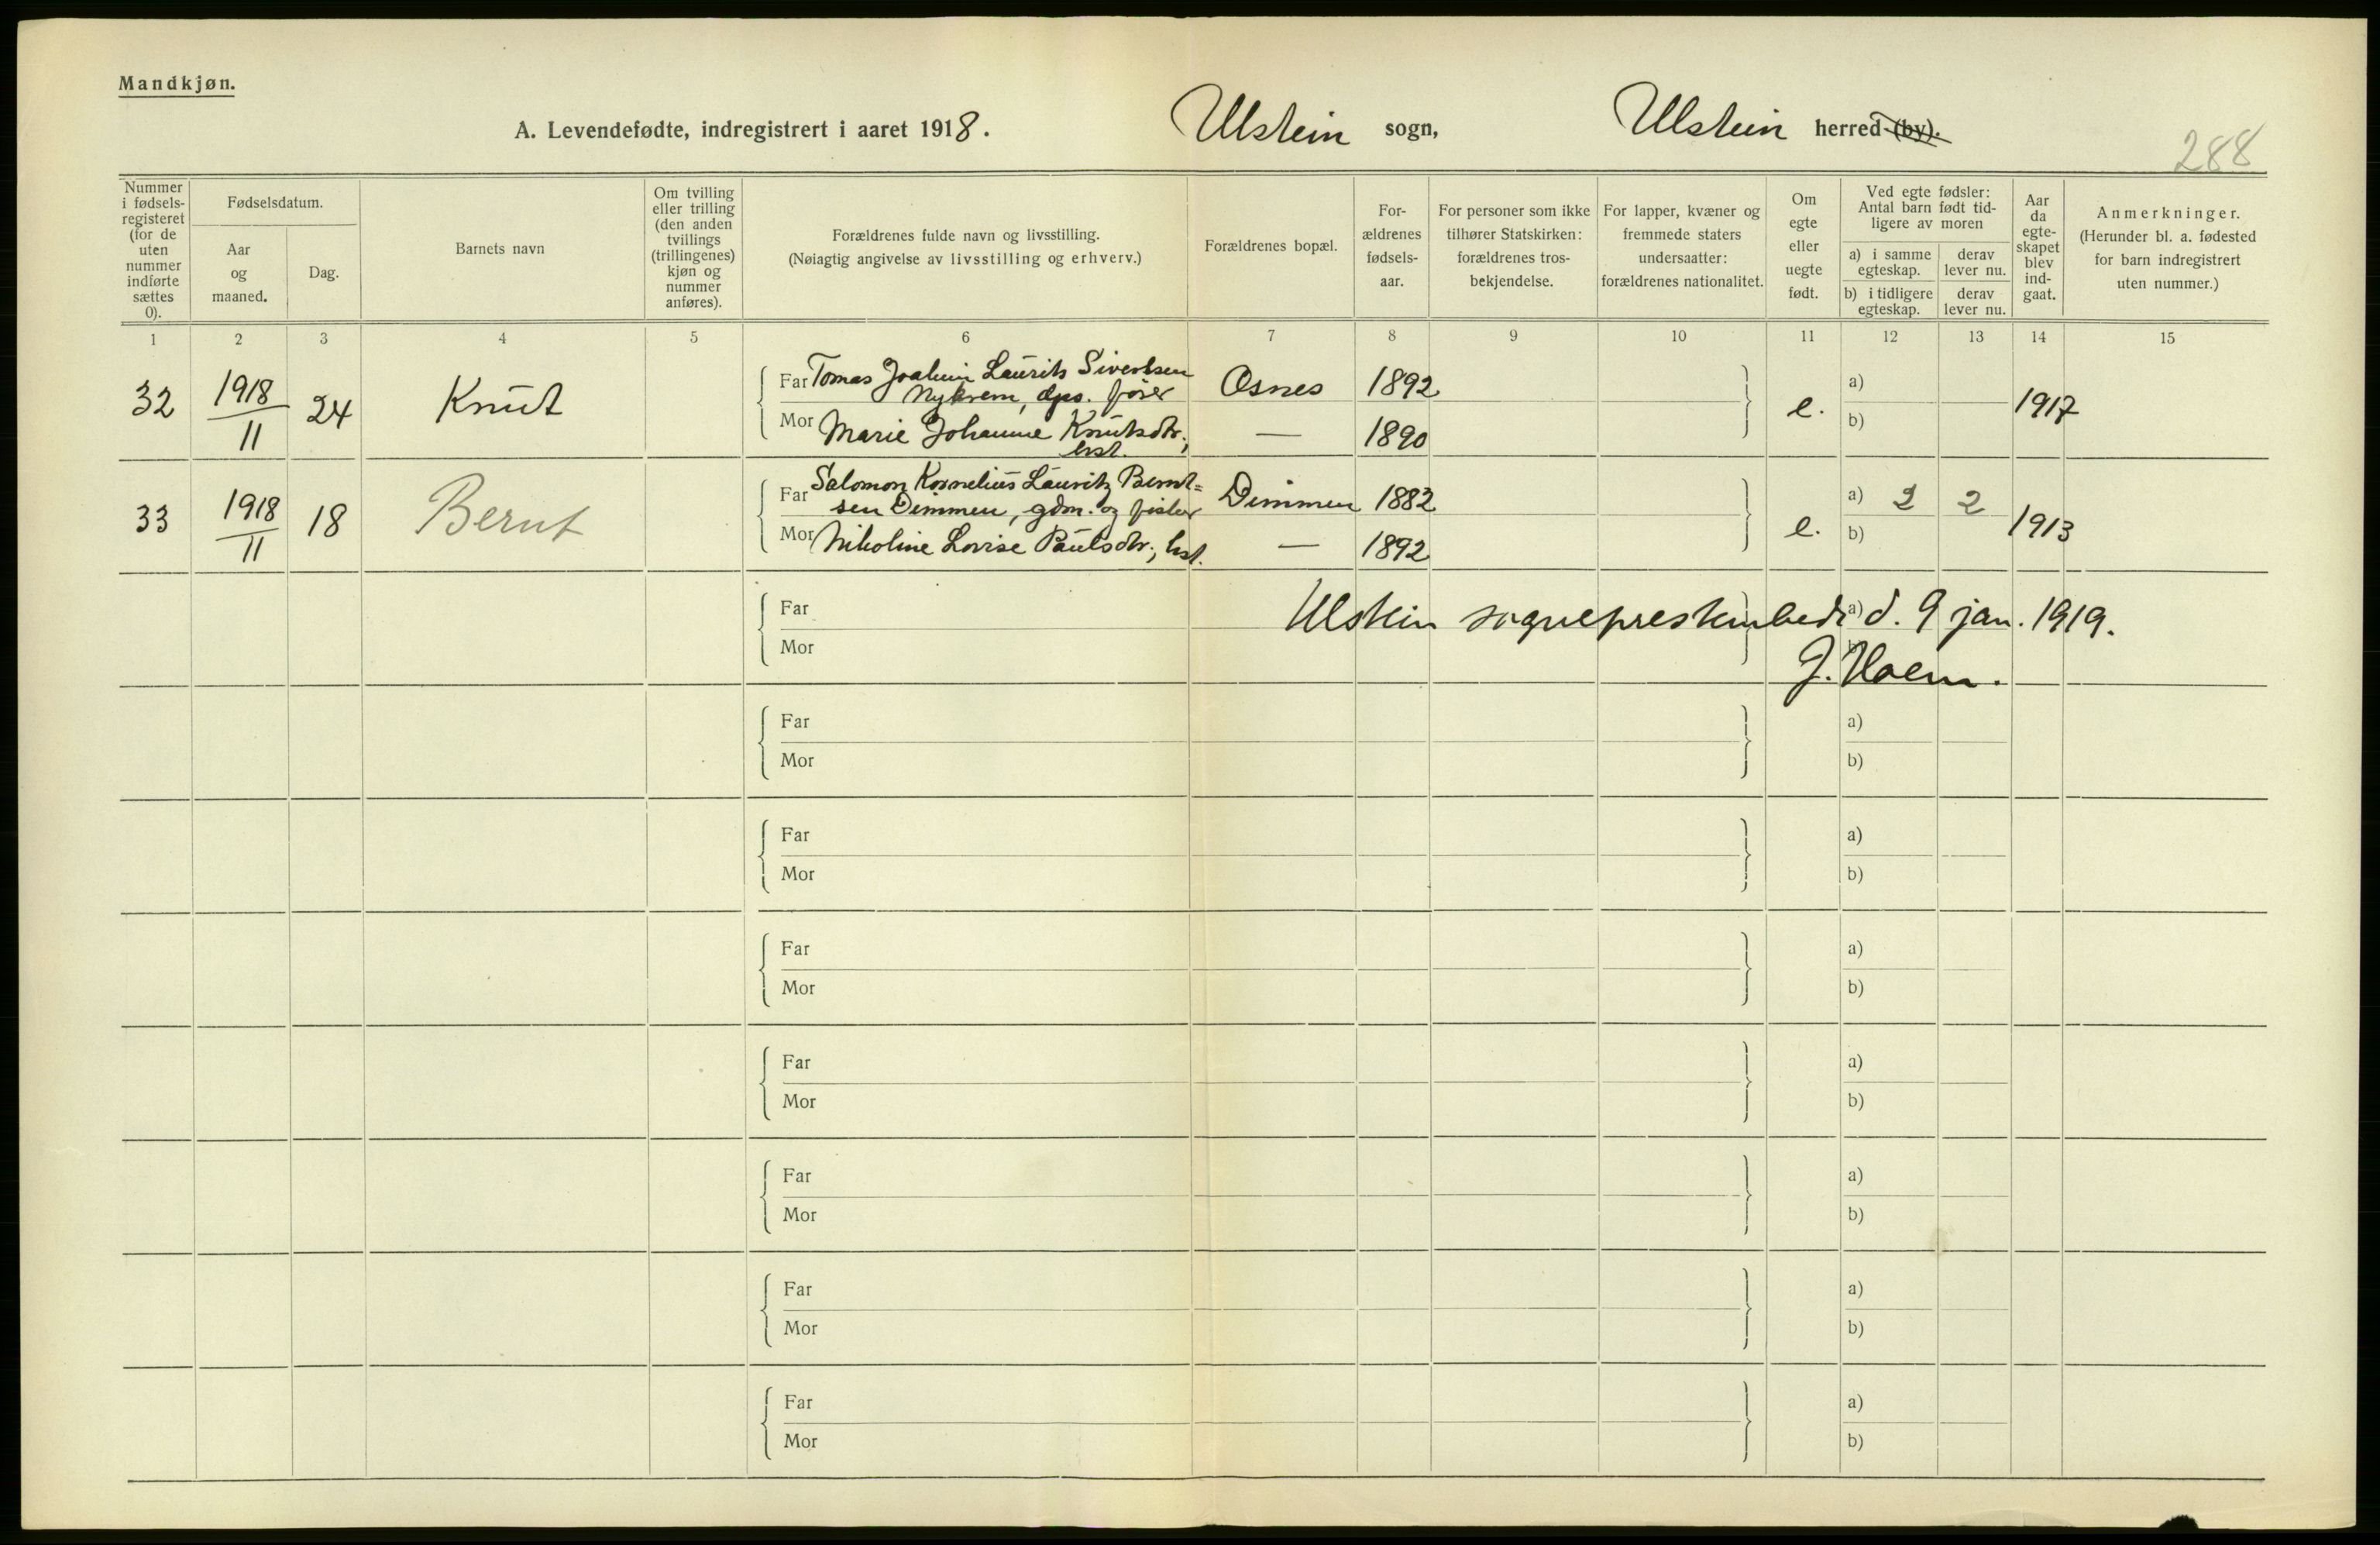 Mandkjøn.
A. Levendefødte, indregistrert i aaret 1918. Ulstein sogn, Ulstein herred (by).
288
Nummer i fødsels-registeret (for de uten nummer indførte sættes 0).
Fødselsdatum.
Aar og maaned.
Dag.
Barnets navn
Om tvilling eller trilling (den anden tvillings (trillingenes) kjøn og nummer anføres).
Forældrenes fulde navn og livsstilling.
(Nøiagtig angivelse av livsstilling og erhverv.)
Forældrenes bopæl.
For-ældrenes fødsels-aar.
For personer som ikke tilhører Statskirken: forældrenes tros-bekjendelse.
For lapper, kvæner og fremmede staters undersaatter: forældrenes nationalitet.
Om egte eller uegte født.
Ved egte fødsler: Antal barn født tid-ligere av moren
a) i samme egteskap.
derav lever nu.
b) i tidligere egteskap.
derav lever nu.
Aar da egte-skapet blev ind-gaat.
Anmerkninger.
(Herunder bl. a. fødested for barn indregistrert uten nummer.)
1 2 3 4 5 6 7 8 9 10 11 12 13 14 15
32 1918 11 24 Knut
Far Tomas Joakim Laurits Sivertsen
Nykrem, dps. fører Osnes 1892
Mor Marie Johanne Knutsdtr.,
hst. — 1890
e. a) b) 1917
33 1918 11 18 Bernt
Far Salomon Kornelius Lauritz Bernt=
sen Dimmen, gdm. og fisker Dimmen 1882
Mor Nikoline Lovise Paulsdtr., hst. — 1892
e. a) 2 2 b) 1913
Far Ulstein sogneprestembede a) d. 9 jan. 1919.
Mor J. Hoem.
Far a)
Mor b)
Far a)
Mor b)
Far a)
Mor b)
Far a)
Mor b)
Far a)
Mor b)
Far a)
Mor b)
Far a)
Mor b)